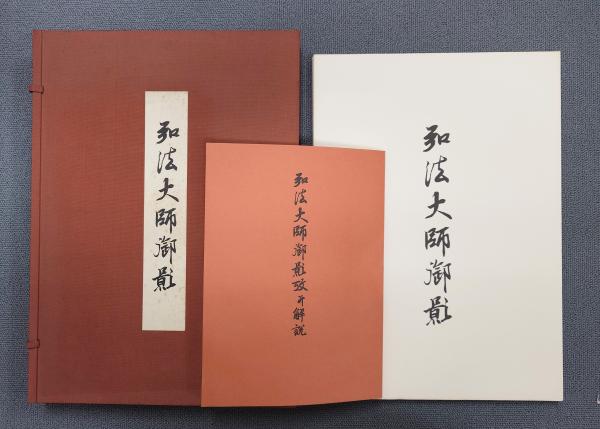 弘法大師御影
弘法大師御影攷并解説
弘法大師御影